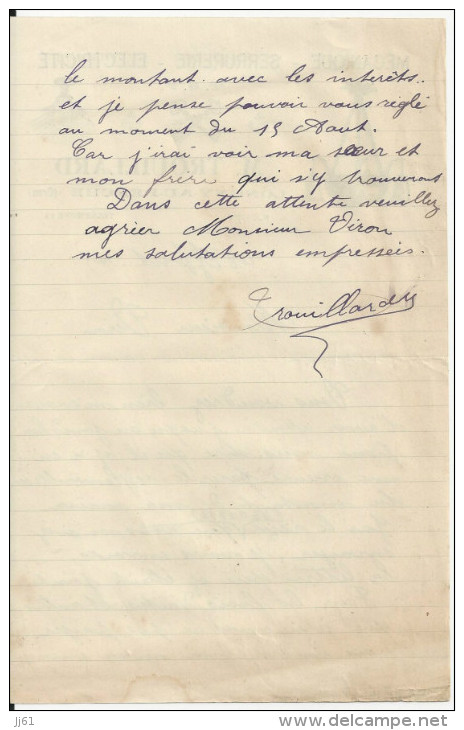 le montant avec les interêts..
et je pense pouvoir vous réglé
au moment du 15 Aout.
Car j'irai voir ma sœur et
mon frère qui s'y trouveront
Dans cette attente veuillez
agréer Monsieur Viron
mes salutations empressées.
Trouillard
jj61
delcampe.net